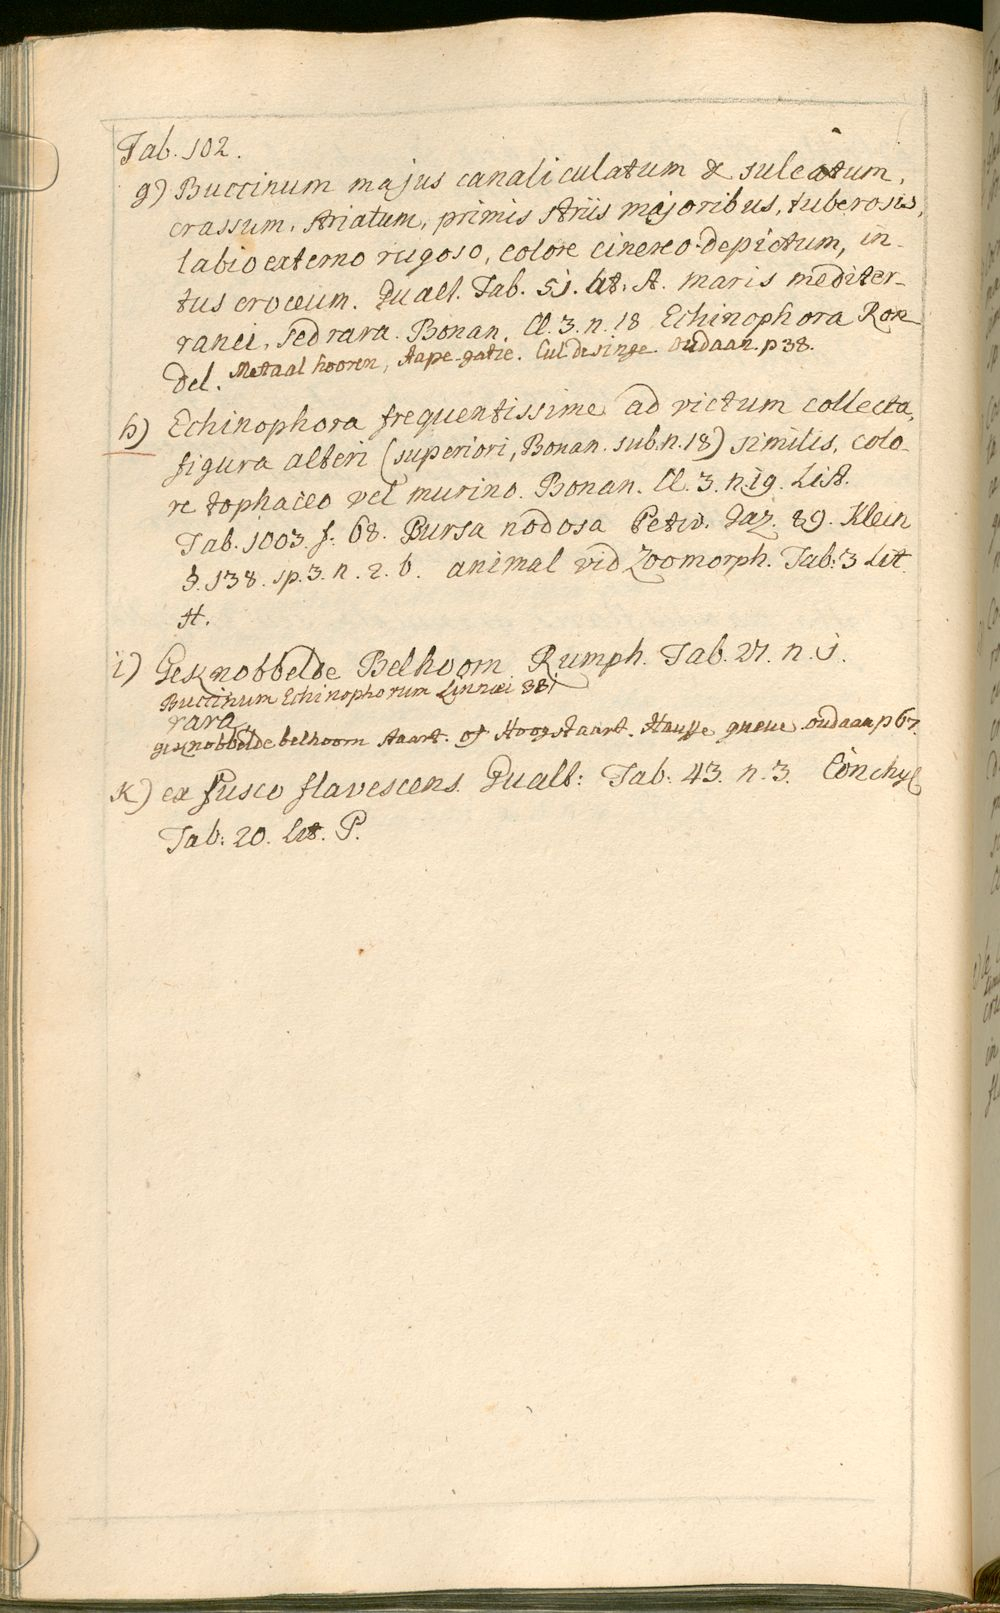 Tab. 102.
g) Buccinum majus canaliculatum & sulcatum,
crassum, striatum, primis striis majoribus, tuberosis,
labio externo rugoso, colore cinereo depictum, in-
tus croceum. Gualt. Tab. 51. lit. A. maris mediter-
ranei, sed rara. Bonan. Cl. 3. n. 18 Echinophora Ron
del. Metaal hooren, Aape-gatie. Cul de singe oudaan. p 38.
h) Echinophora frequentissime ad victum collecta,
figura alteri (superiori, Bonan. sub. n. 18) similis, colo-
re tophaceo vel murino. Bonan. Cl. 3. n. 19. List.
Tab. 1003. f. 68. Bursa nodosa Petiv. Gaz. 89. Klein
§. 138. sp. 3. n. 2. b. animal vid Zoomorph. Tab: 3 Lit
H.
i) Geknobbelde Belhoorn Rumph. Tab. 27. n. 1.
Buccinum Echinophorum Linnæi 381
rara.
geknobbelde belhoorn staart. of Hoogstaart. Hausse queue oudaan p 67.
K) ex fusco flavescens. Gualt: Tab: 43. n. 3. Conchyl
Tab: 20. Lit. P.